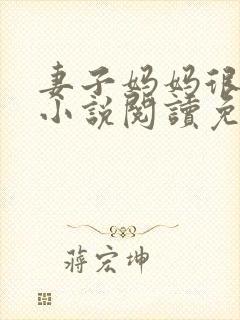 妻子妈妈很
小说閱讀免
蔣宏坤